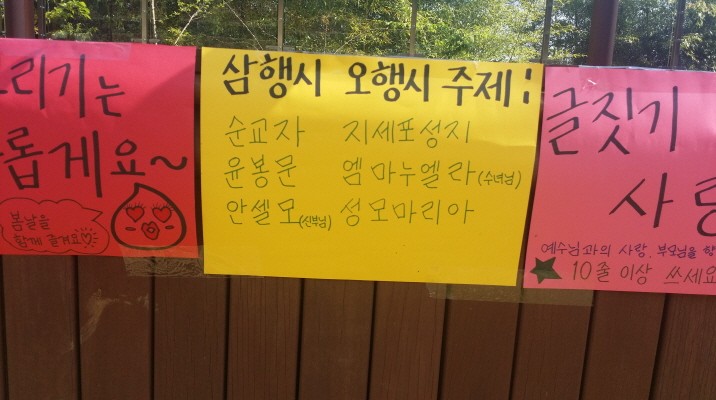 리기는
롭게요~
봄날을
함께 즐겨요♡
삼행시 오행시 주제:
순교자 지세포성지
윤봉문 엠마누엘라(수녀님)
안셀모(신부님) 성모마리아
글짓기
사랑
예수님과의 사랑, 부모님을 향
★ 10줄 이상 쓰세요